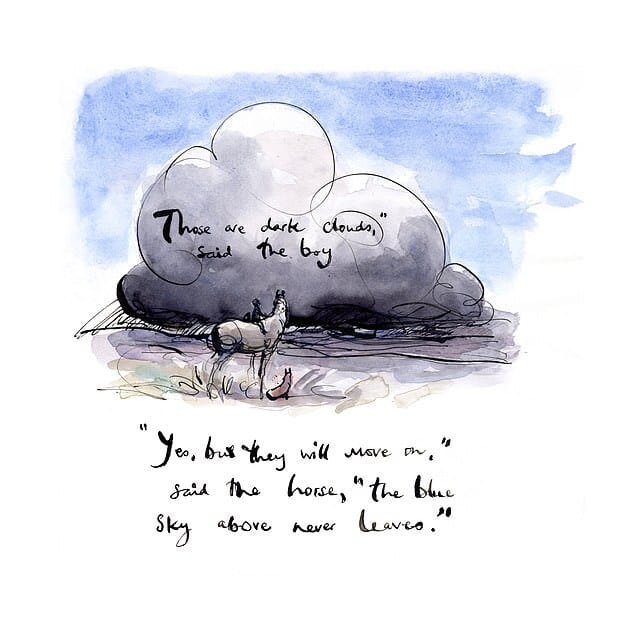 Those are dark clouds,"
said the boy
"Yes, but they will move on,"
said the horse, "the blue
sky above never leaves."